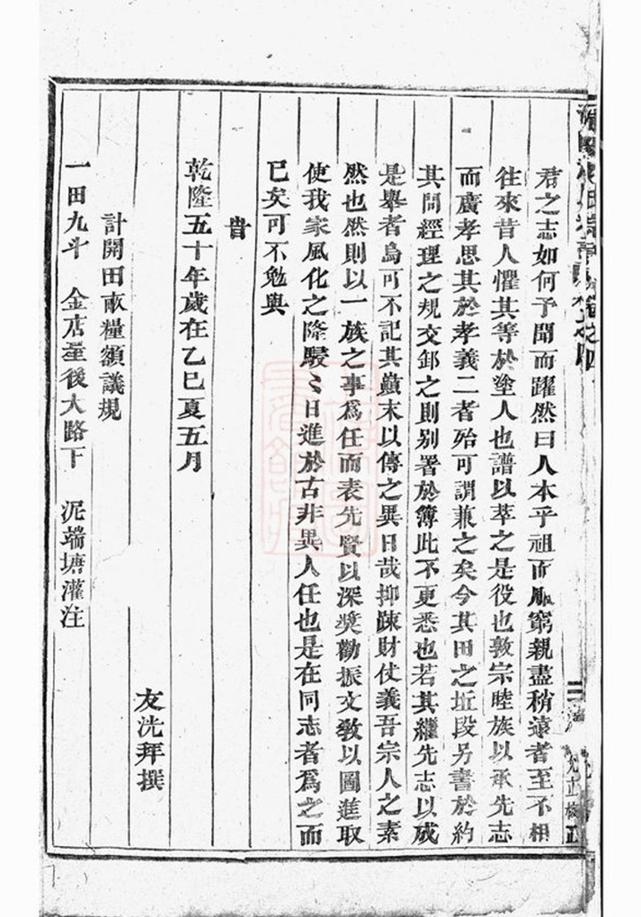 君之志如何予聞而躍然曰人本乎祖而服窮親盡稍遠者至不相
往來昔人懼其等於塗人也譜以萃之是役也敦宗睦族以承先志
而廣孝思其於孝義二者殆可謂兼之矣今其田之坵段另書於約
其問經理之規交卸之則别署於簿此不更悉也若其繼先志以成
是舉者烏可不記其巔末以傳之異日哉抑疎財仗義吾宗人之素
然也然則以一族之事爲任而表先賢以深奖勸振文敎以圖進取
使我家風化之隆駸〻日進於古非異人任也是在同志者爲之而
已矣可不勉與
旹
乾隆五十年歲在乙巳夏五月
友洸拜撰
計開田畝糧額議規
一田九斗 金店垔後大路下 泥端塘灌注